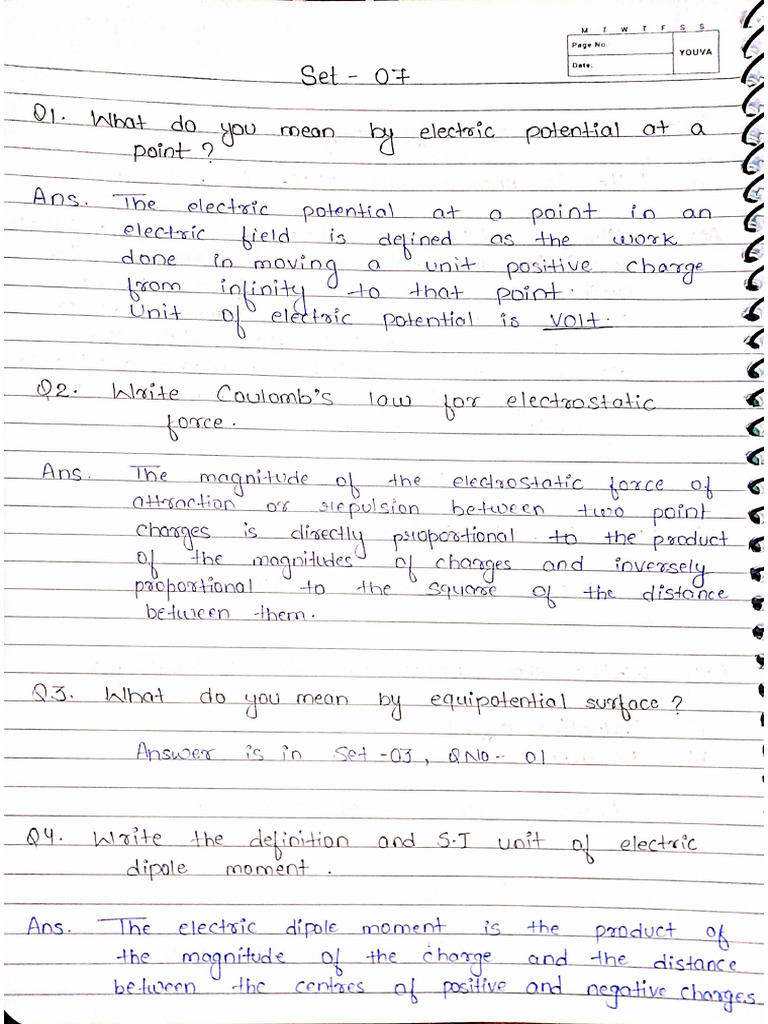 M T W T F S S
Page No.
YOUVA
Date:
Set - 07
Q1. What do you mean by electric potential at a
point ?
Ans. The electric potential at a point in an
electric field is defined as the work
done in moving a unit positive charge
from infinity to that point.
Unit of electric potential is volt.
Q2. Write Coulomb's law for electrostatic
force.
Ans. The magnitude of the electrostatic force of
attraction or repulsion between two point
charges is directly proportional to the product
of the magnitudes of charges and inversely
proportional to the square of the distance
between them.
Q3. What do you mean by equipotential surface ?
Answer is in Set -03, QNo- 01
Q4. Write the definition and S.I unit of electric
dipole moment.
Ans. The electric dipole moment is the product of
the magnitude of the charge and the distance
between the centres of positive and negative charges